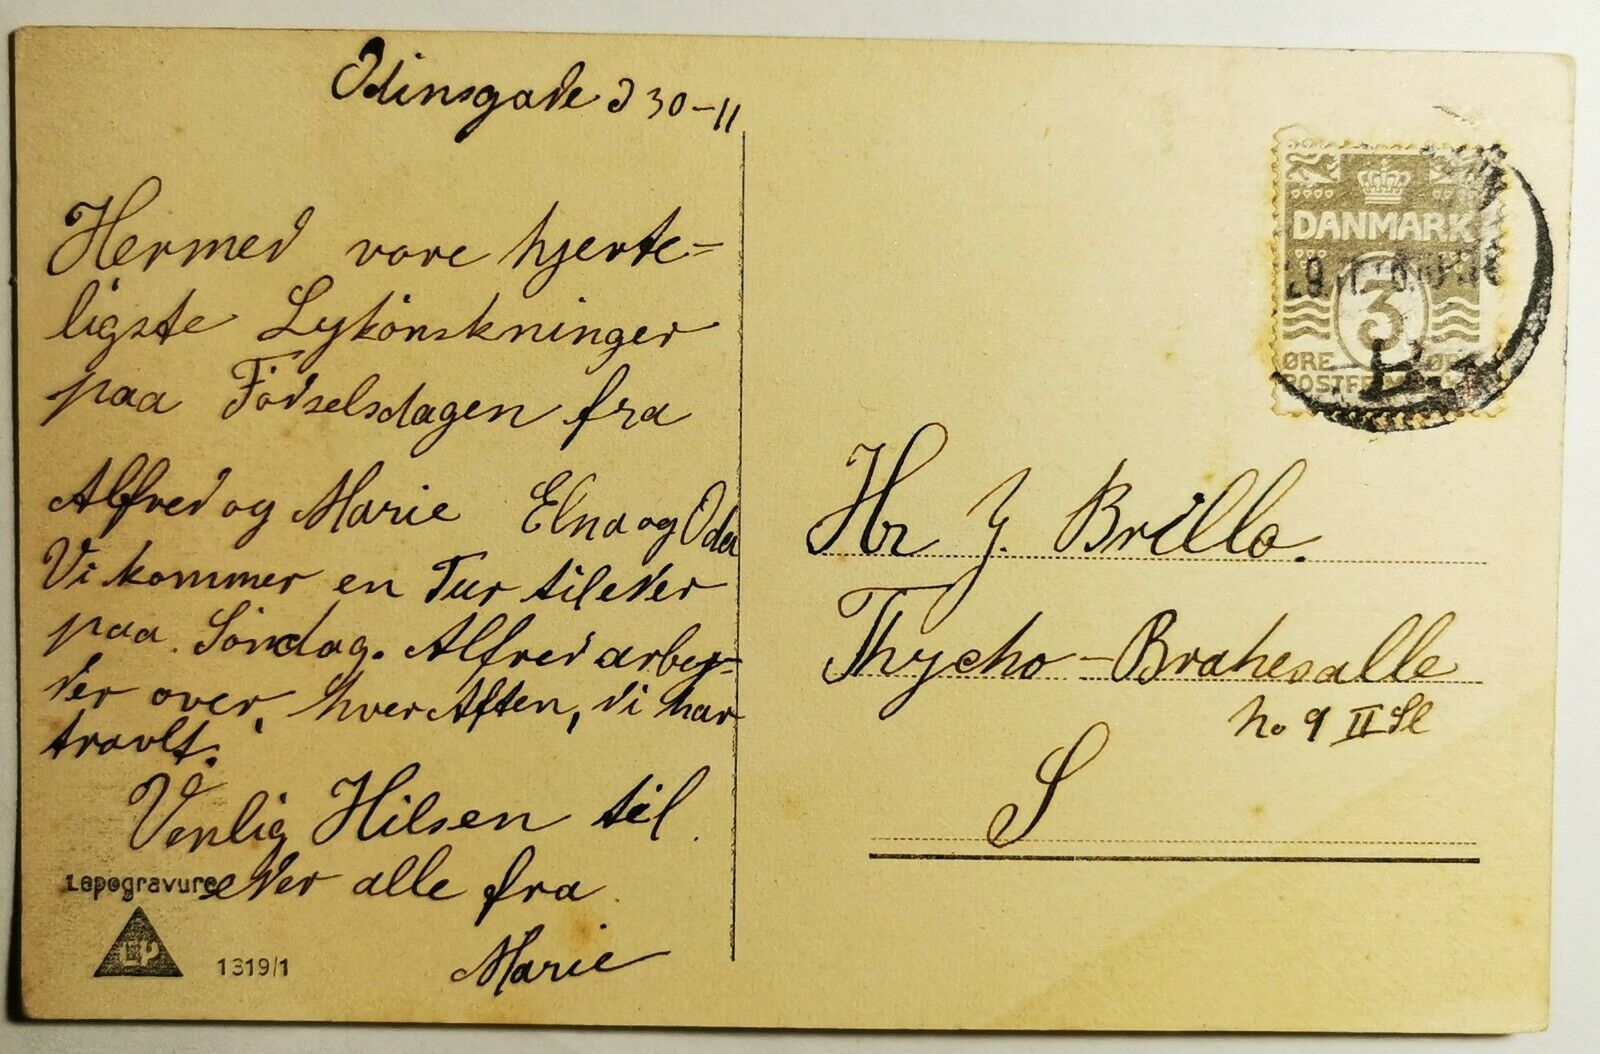 Odinsgade d 30-11
Hermed vore hjerte=
ligste Lykönskninger
paa Födselsdagen fra
Alfred og Marie Elna og Oda
Vi kommer en Tur til eder
paa Söndag. Alfred arbey=
der over, hver Aften, vi har
travlt.
Venlig Hilsen til
eder alle fra
Marie
Lepogravure
LP
1319/1
DANMARK
3
ØRE ØRE
POSTFRIM
Hr J. Brillo.
Thycho-Brahesalle
No 9 II Sl
S